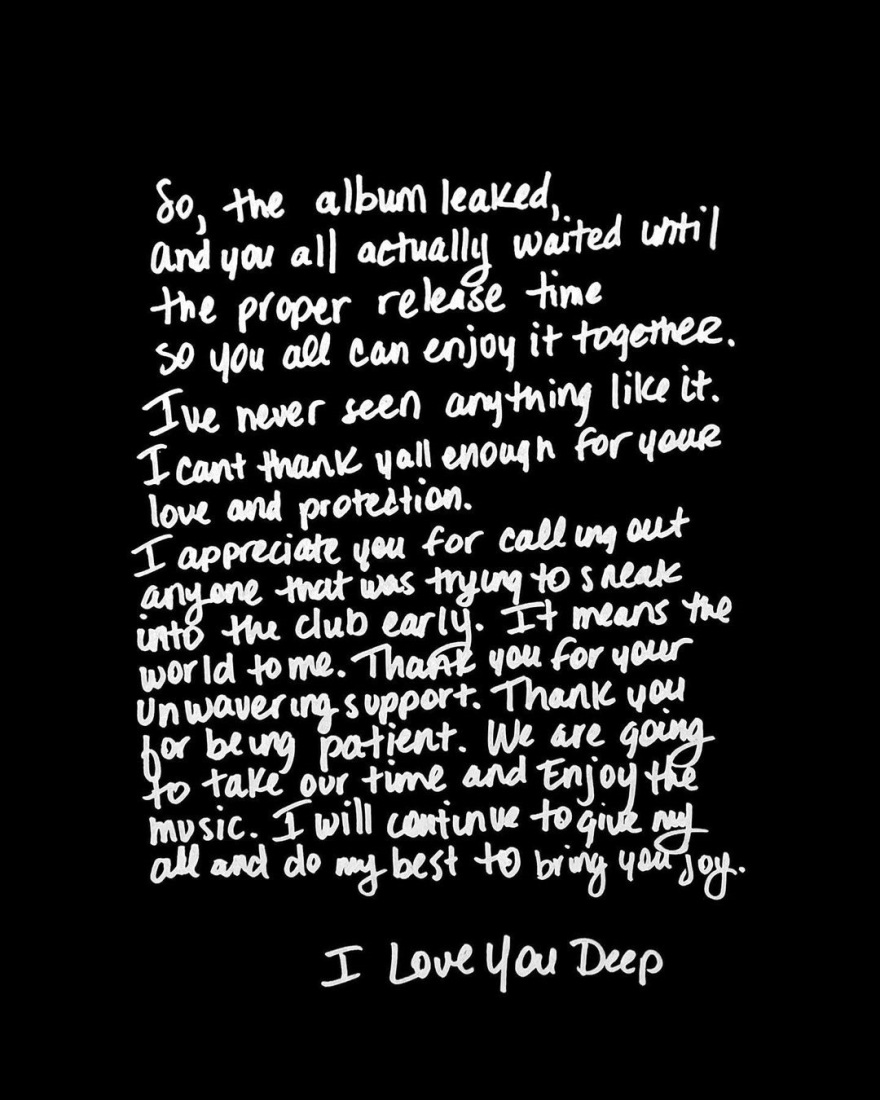 So, the album leaked,
and you all actually waited until
the proper release time
so you all can enjoy it together.
Ive never seen anything like it.
I cant thank yall enough for your
love and protection.
I appreciate you for calling out
anyone that was trying to sneak
into the club early. It means the
world to me. Thank you for your
unwavering support. Thank you
for being patient. We are going
to take our time and Enjoy the
music. I will continue to give my
all and do my best to bring you joy.
I Love You Deep